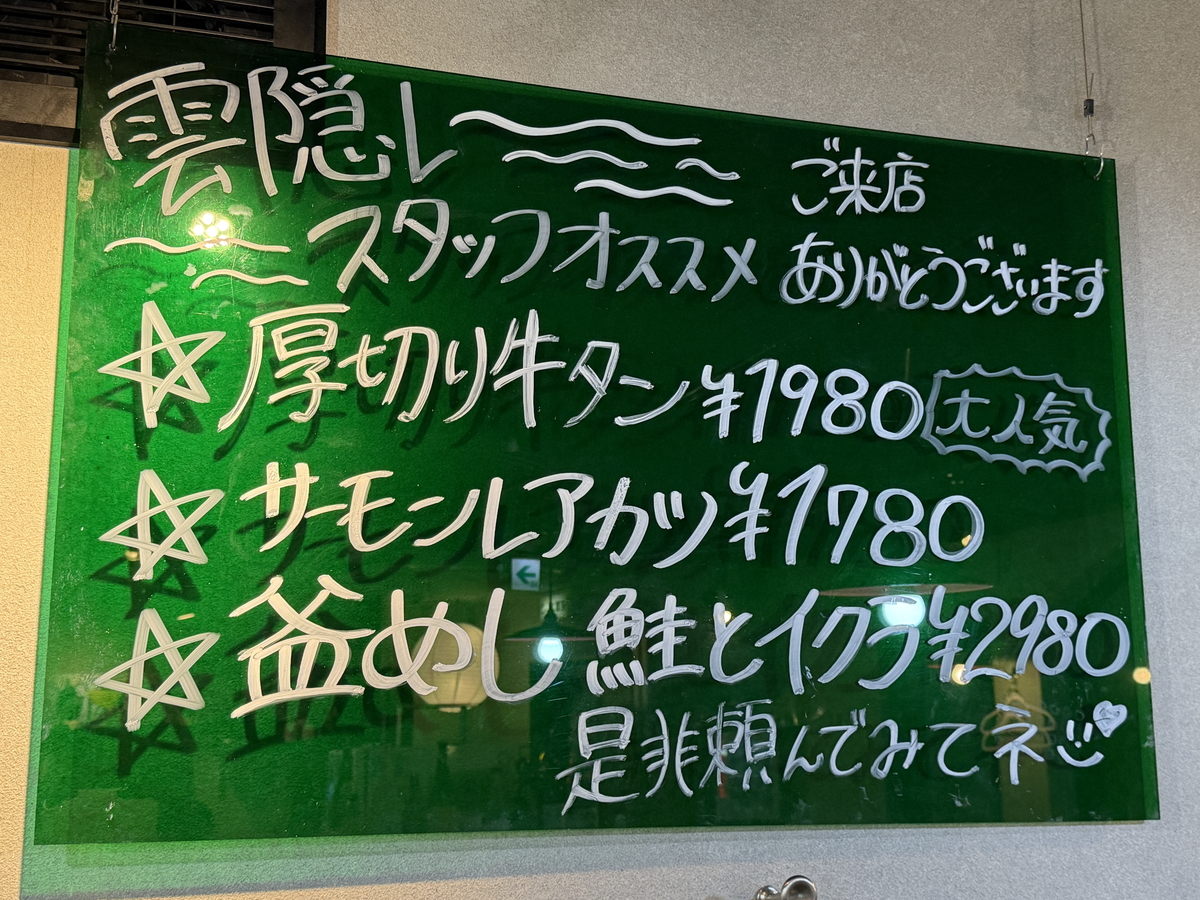 雲隠し
スタッフオススメ
ご来店
ありがとうございます
☆厚切り牛タン ¥1980 大人気
☆サーモンレアカツ ¥1780
☆釜めし 鮭とイクラ ¥2980
是非頼んでみてネ